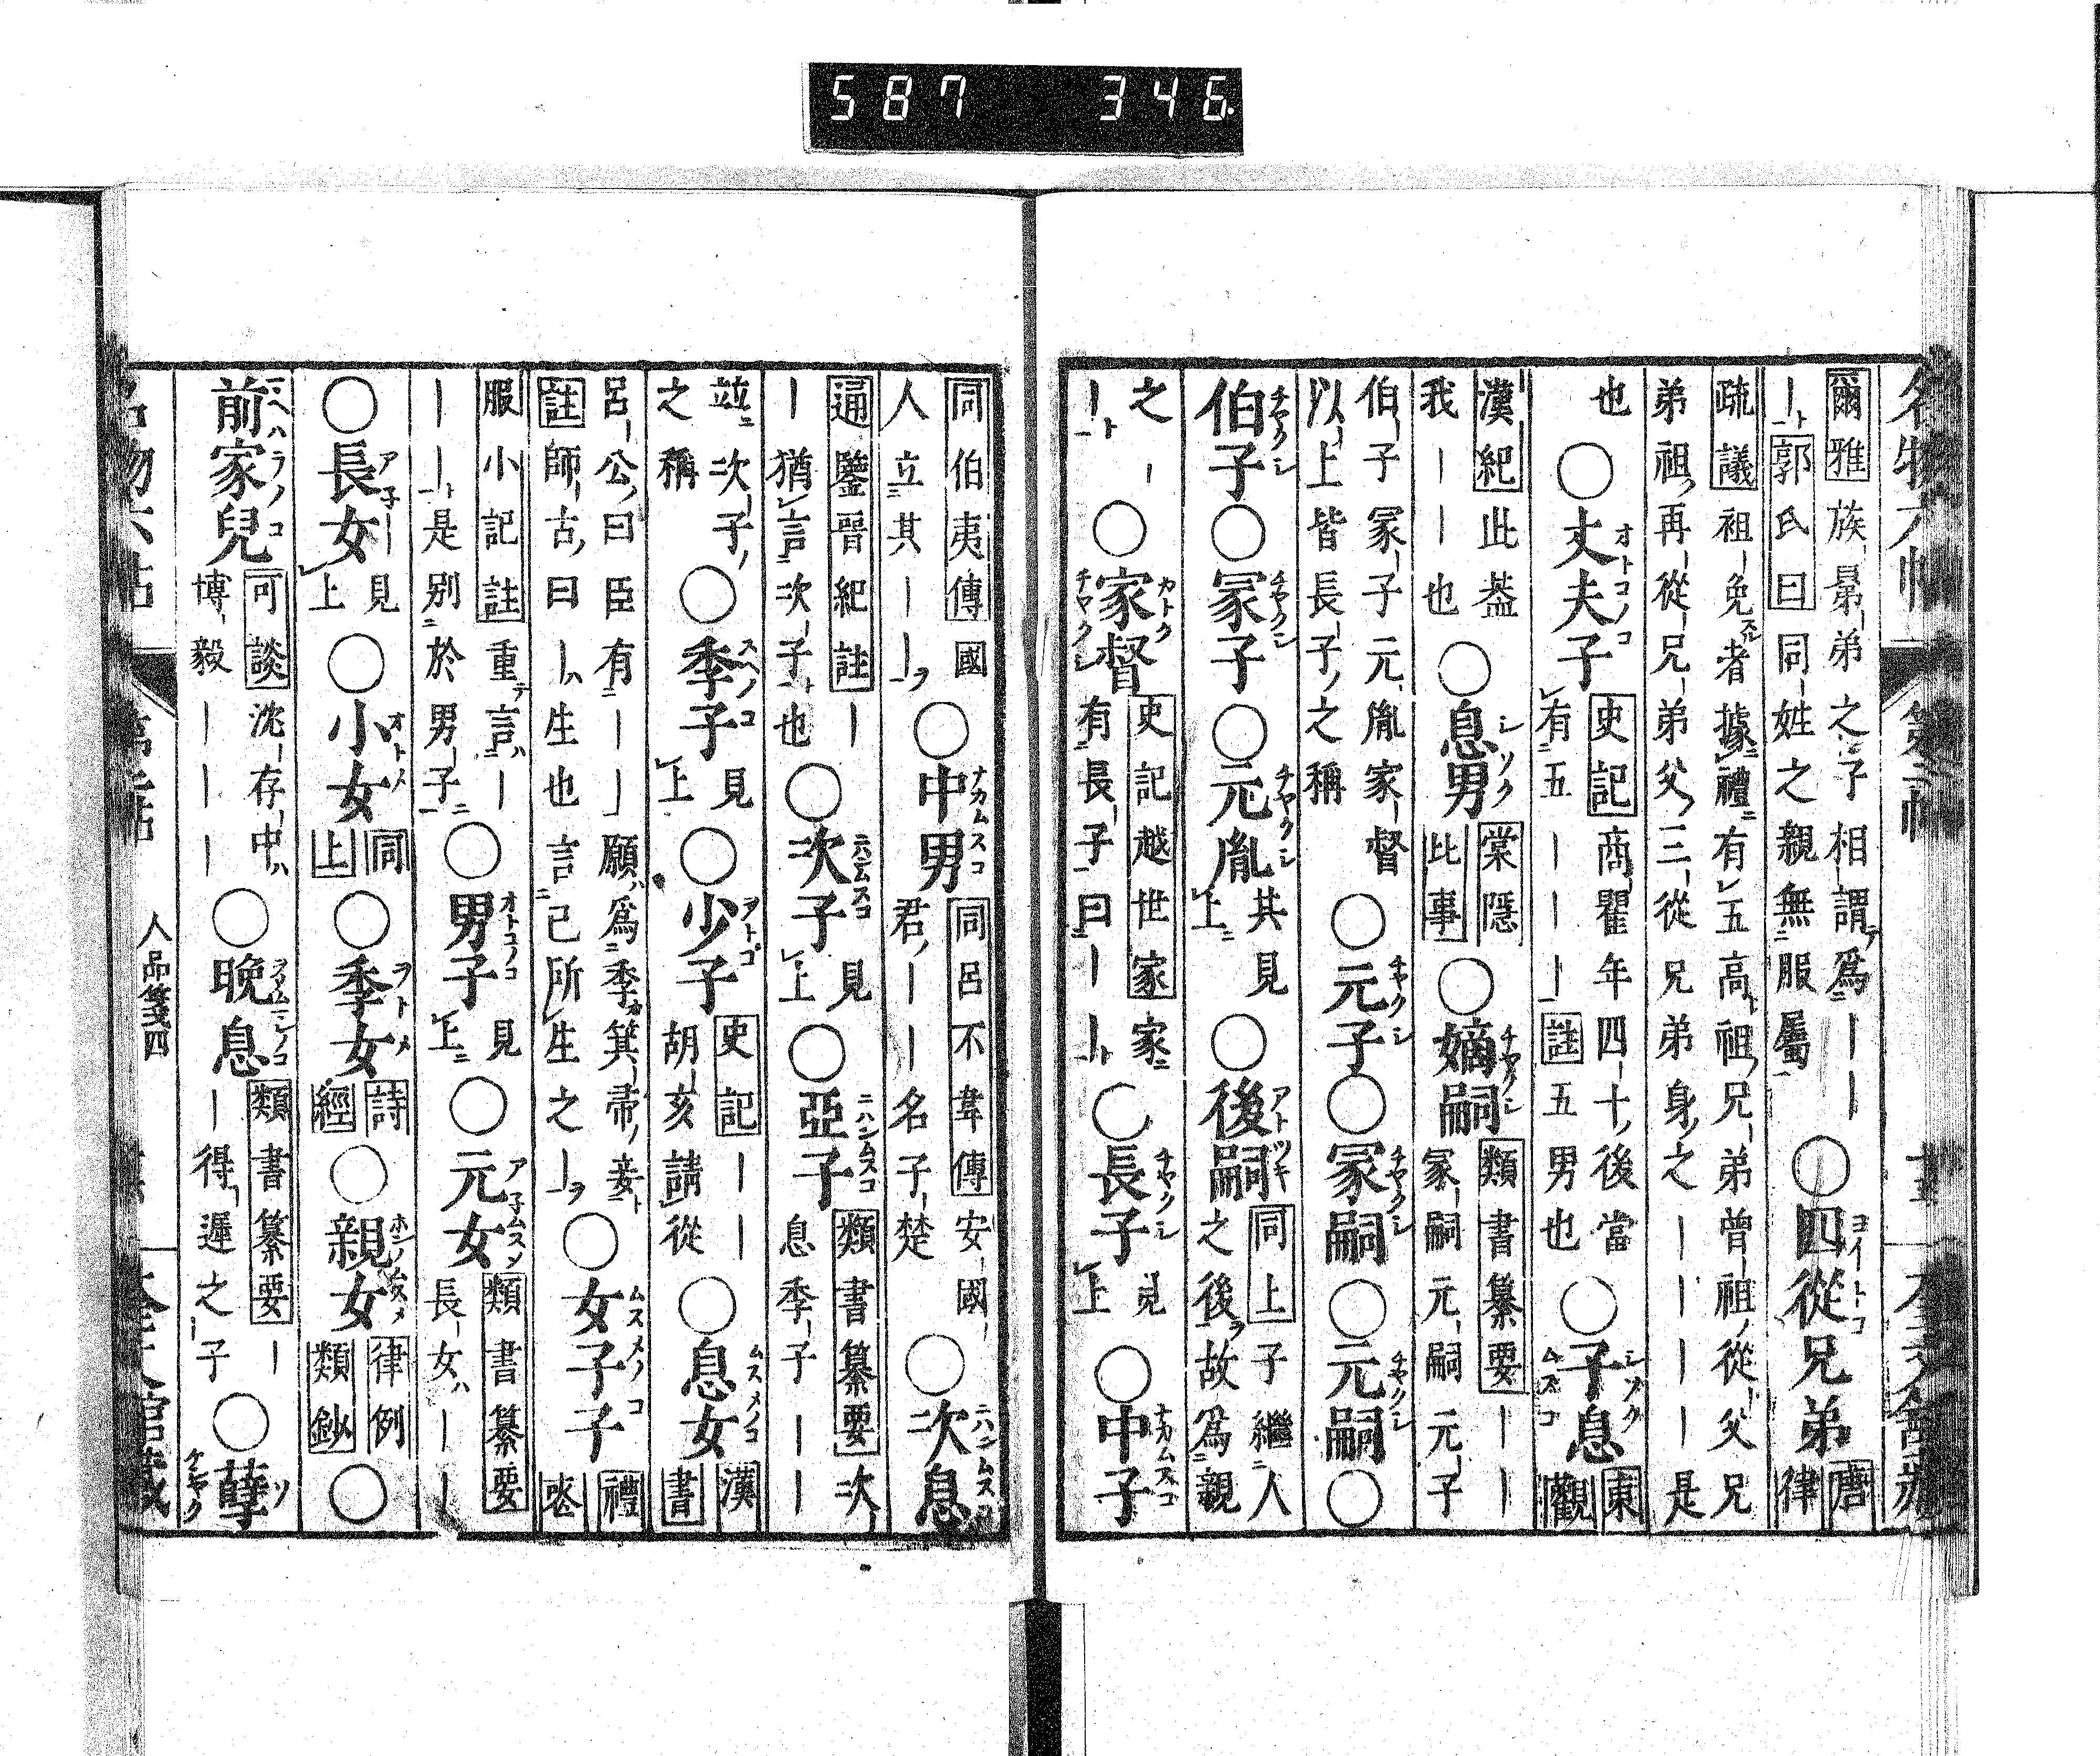 名物六帖
爾雅族晜弟之子相謂爲｜｜
｜郭氏曰同姓之親無服屬
○四從兄弟 唐律
疏議袒免者據禮有五高祖兄弟曾祖從父兄
弟祖再從兄弟父三從兄弟身之｜｜｜｜是
也○丈夫子 史記商瞿年四十後當
有五｜｜｜註五男也
○子息 東觀
漢紀此葢
我｜｜也
○息男 棠隱比事 ○嫡嗣 類書纂要｜｜
冢嗣元嗣元子
伯子冢子元胤家督
以上皆長子之稱
○元子○冢嗣○元嗣○
伯子○冢子○元胤 其見上 ○後嗣 同上子繼人
之後故爲親
之｜
｜○家督 史記越世家家
有長子曰｜｜
○長子 見上 ○中子
同伯夷傳國
人立其｜｜
○中男 同呂不韋傳安國
君｜｜名子楚
○次息
通鑒晉紀註｜
｜猶言次子也
○次子 見上 ○亞子 類書纂要次
息季子｜｜
竝次子
之稱
○季子 見上 ○少子 史記｜｜
胡亥請從
○息女 漢書
呂公曰臣有｜｜願爲季箕帚妾
註師古曰｜生也言己所生之｜
○女子子 禮喪
服小記註重言｜
｜｜是别於男子
○男子 見上 ○元女 類書纂要
長女｜｜
○長女 見上 ○小女 同上 ○季女 詩經 ○親女 律例類鈔 ○
前家兒 可談沈存中
博毅｜｜｜
○晚息 類書纂要｜
｜得遲之子
○孽
人品箋四